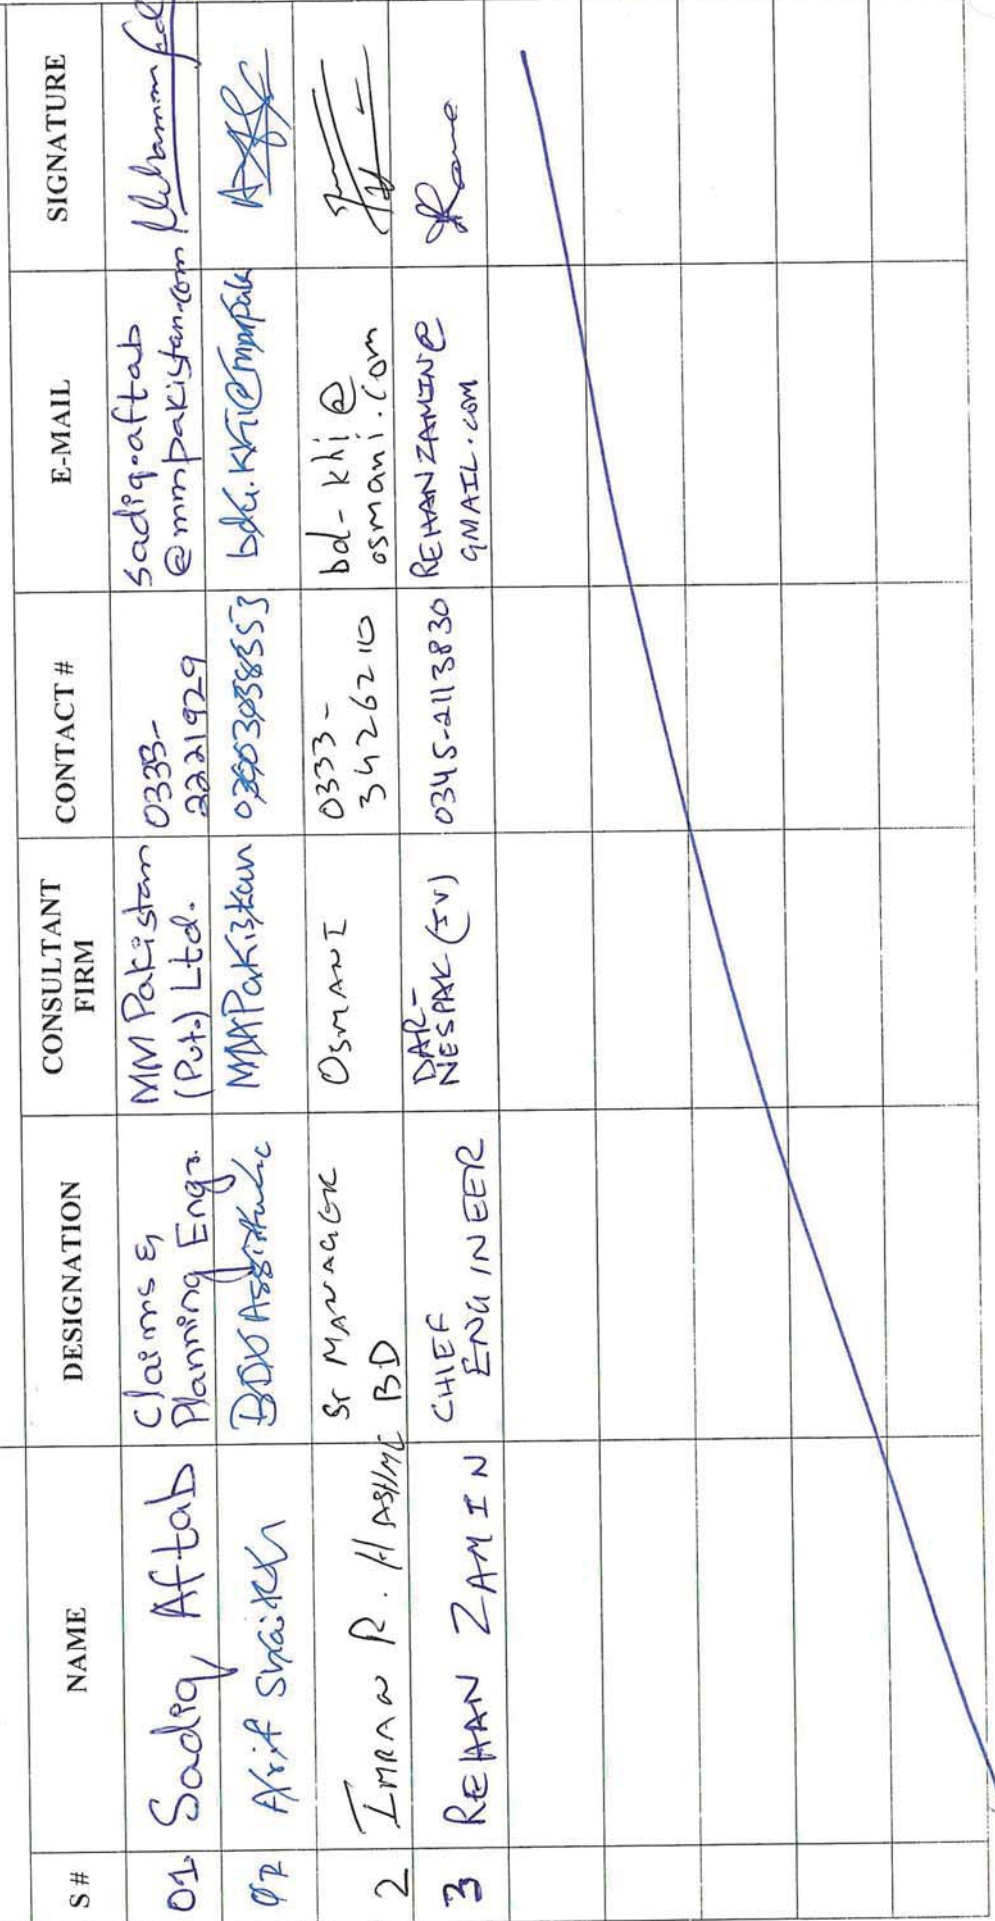 S # NAME DESIGNATION CONSULTANT FIRM CONTACT # E-MAIL SIGNATURE
01. Sadiq Aftab Claims & Planning Engr. MM Pakistan (Pvt.) Ltd. 0333-2221929 sadiq.aftab@mmpakistan.com
02 Arif Shaikh BDU Assistant MMPakistan bdu.khi@mmpak
2 IMRAN R. HASHMI Sr MANAGER BD OSMANI 0333-3426210 bd-khi@osmani.com
3 REHAN ZAMIN CHIEF ENGINEER DAR-NESPAK (JV) 0345-2113830 REHANZAMIN@GMAIL.COM